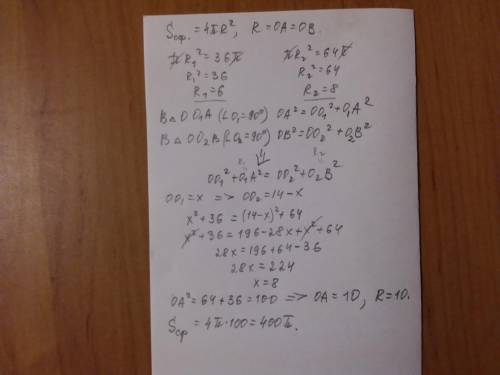 Sсф. = 4πR², R = OA = OB.
πR₁² = 36π πR₂² = 64π
R₁² = 36 R₂² = 64
R₁ = 6 R₂ = 8
В △ OO₁A (∠O₁ = 90°) OA² = OO₁² + O₁A²
В △ OO₂B (∠O₂ = 90°) OB² = OO₂² + O₂B²
⇓
OO₁² + O₁A² = OO₂² + O₂B²
OO₁ = x => OO₂ = 14 - x
x² + 36 = (14 - x)² + 64
x² + 36 = 196 - 28x + x² + 64
28x = 196 + 64 - 36
28x = 224
x = 8
OA² = 64 + 36 = 100 => OA = 10, R = 10.
Sсф = 4π·100 = 400π.